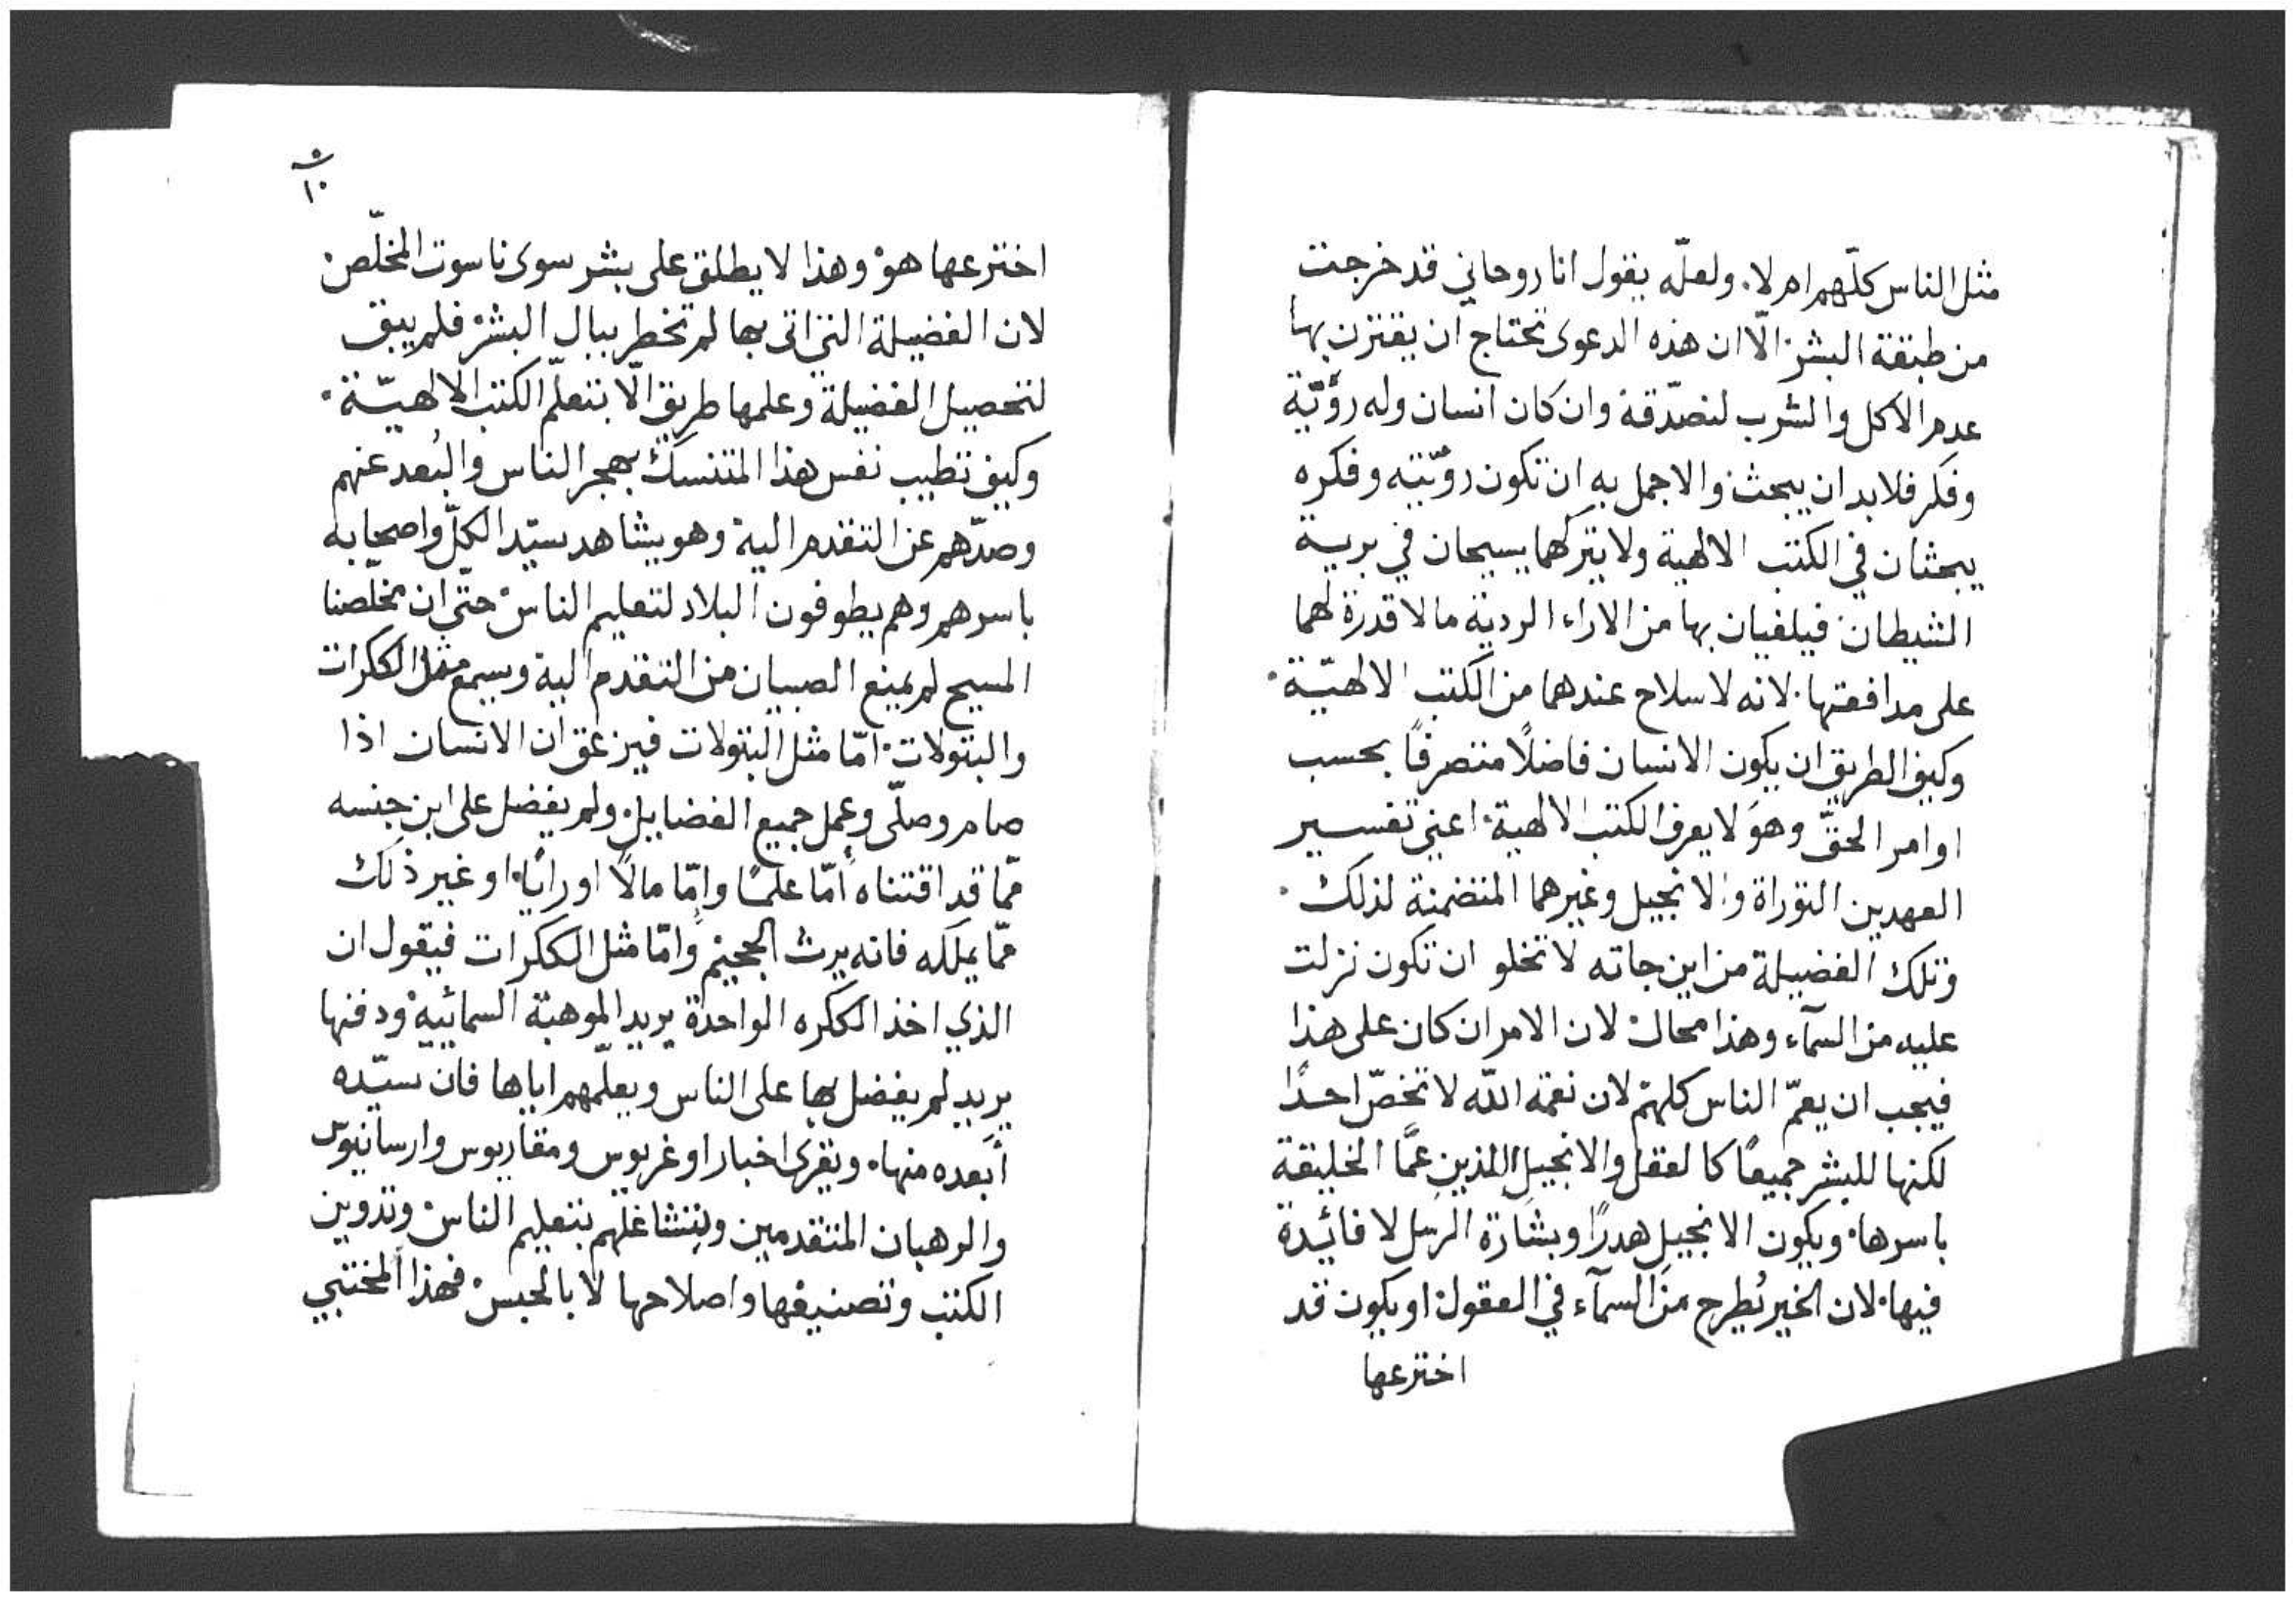 مثل الناس كلّهم ام لا. ولعلّه يقول انا روحاني قد خرجت
من طبقة البشر. الّا ان هذه الدعوى تحتاج ان يقترن بها
عدم الاكل والشرب لنصدّقه وان كان انسان وله رؤيّة
وفكر فلا بد ان يبحث والاجمل به ان تكون رؤيّته وفكره
يبحثان في الكتب الالهية ولا يتركهما يسيحان في برية
الشيطان فيلفيان بها من الاراء الردية ما لا قدرة لهما
على مدافعتها. لانه لا سلاح عندهما من الكتب الالهيّة.
وكيف الطريق ان يكون الانسان فاضلًا متصرفًا بحسب
اوامر الحقّ وهوَ لا يعرف الكتب الالهية. اعني تفسير
العهدين التوراة والانجيل وغيرهما المتضمنة لذلك.
وتلك الفضيلة من اين جاته لا تخلو ان تكون نزلت
عليه من السمآء وهذا محال. لان الامر ان كان على هذا
فيجب ان يعمّ الناس كلهم. لان نعمة اللّه لا تخصّ احدًا
لكنها للبشر جميعًا كالعقل والانجيل اللذين عمَّا الخليقة
باسرها. ويكون الانجيل هدرًا وبشارة الرسل لا فائدة
فيها. لان الخير يُطرح من السمآء في العقول. او يكون قد
اخترعها
١٠
اخترعها هوْ وهذا لا يطلق على بشر سوى ناسوت المخلّص
لان الفضيلة التي اتى بها لم تخطر ببال البشر. فلم يبق
لتحصيل الفضيلة وعلمها طريق الّا بتعلّم الكتب الالهيّة.
وكيف تطيب نفس هذا المتنسك بهجر الناس والبُعد عنهم
وصدّهم عن التقدم اليه وهو يشاهد سيّد الكلّ واصحابه
باسرهم وهم يطوفون البلاد لتعليم الناس. حتّى ان مخلّصنا
المسيح لم يمنع الصبيان من التقدم اليه وسمع مثل الككرات
والبتولات. امّا مثل البتولات فيزعق ان الانسان اذا
صام وصلّى وعمل جميع الفضايل. ولم يفضل على ابن جنسه
ممّا قد اقتناه أمّا علمًا وإمّا مالًا او رايًا. او غير ذلك
ممّا يملكه فانه يرث الجحيم وامّا مثل الككرات فيقول ان
الذي اخذ الككره الواحدة يريد الموهبة السمائيية ودفنها
يريد لم يفضل بها على الناس ويعلّمهم اياها فان سيّده
أبعده منها. وتقرى اخبار اوغريوس ومقاريوس وارسانيوس
والرهبان المتقدمين وتنشاغلهم بتعليم الناس. وتدوين
الكتب وتصنيفها واصلاحها لا بالحبس. فهذا المختبي